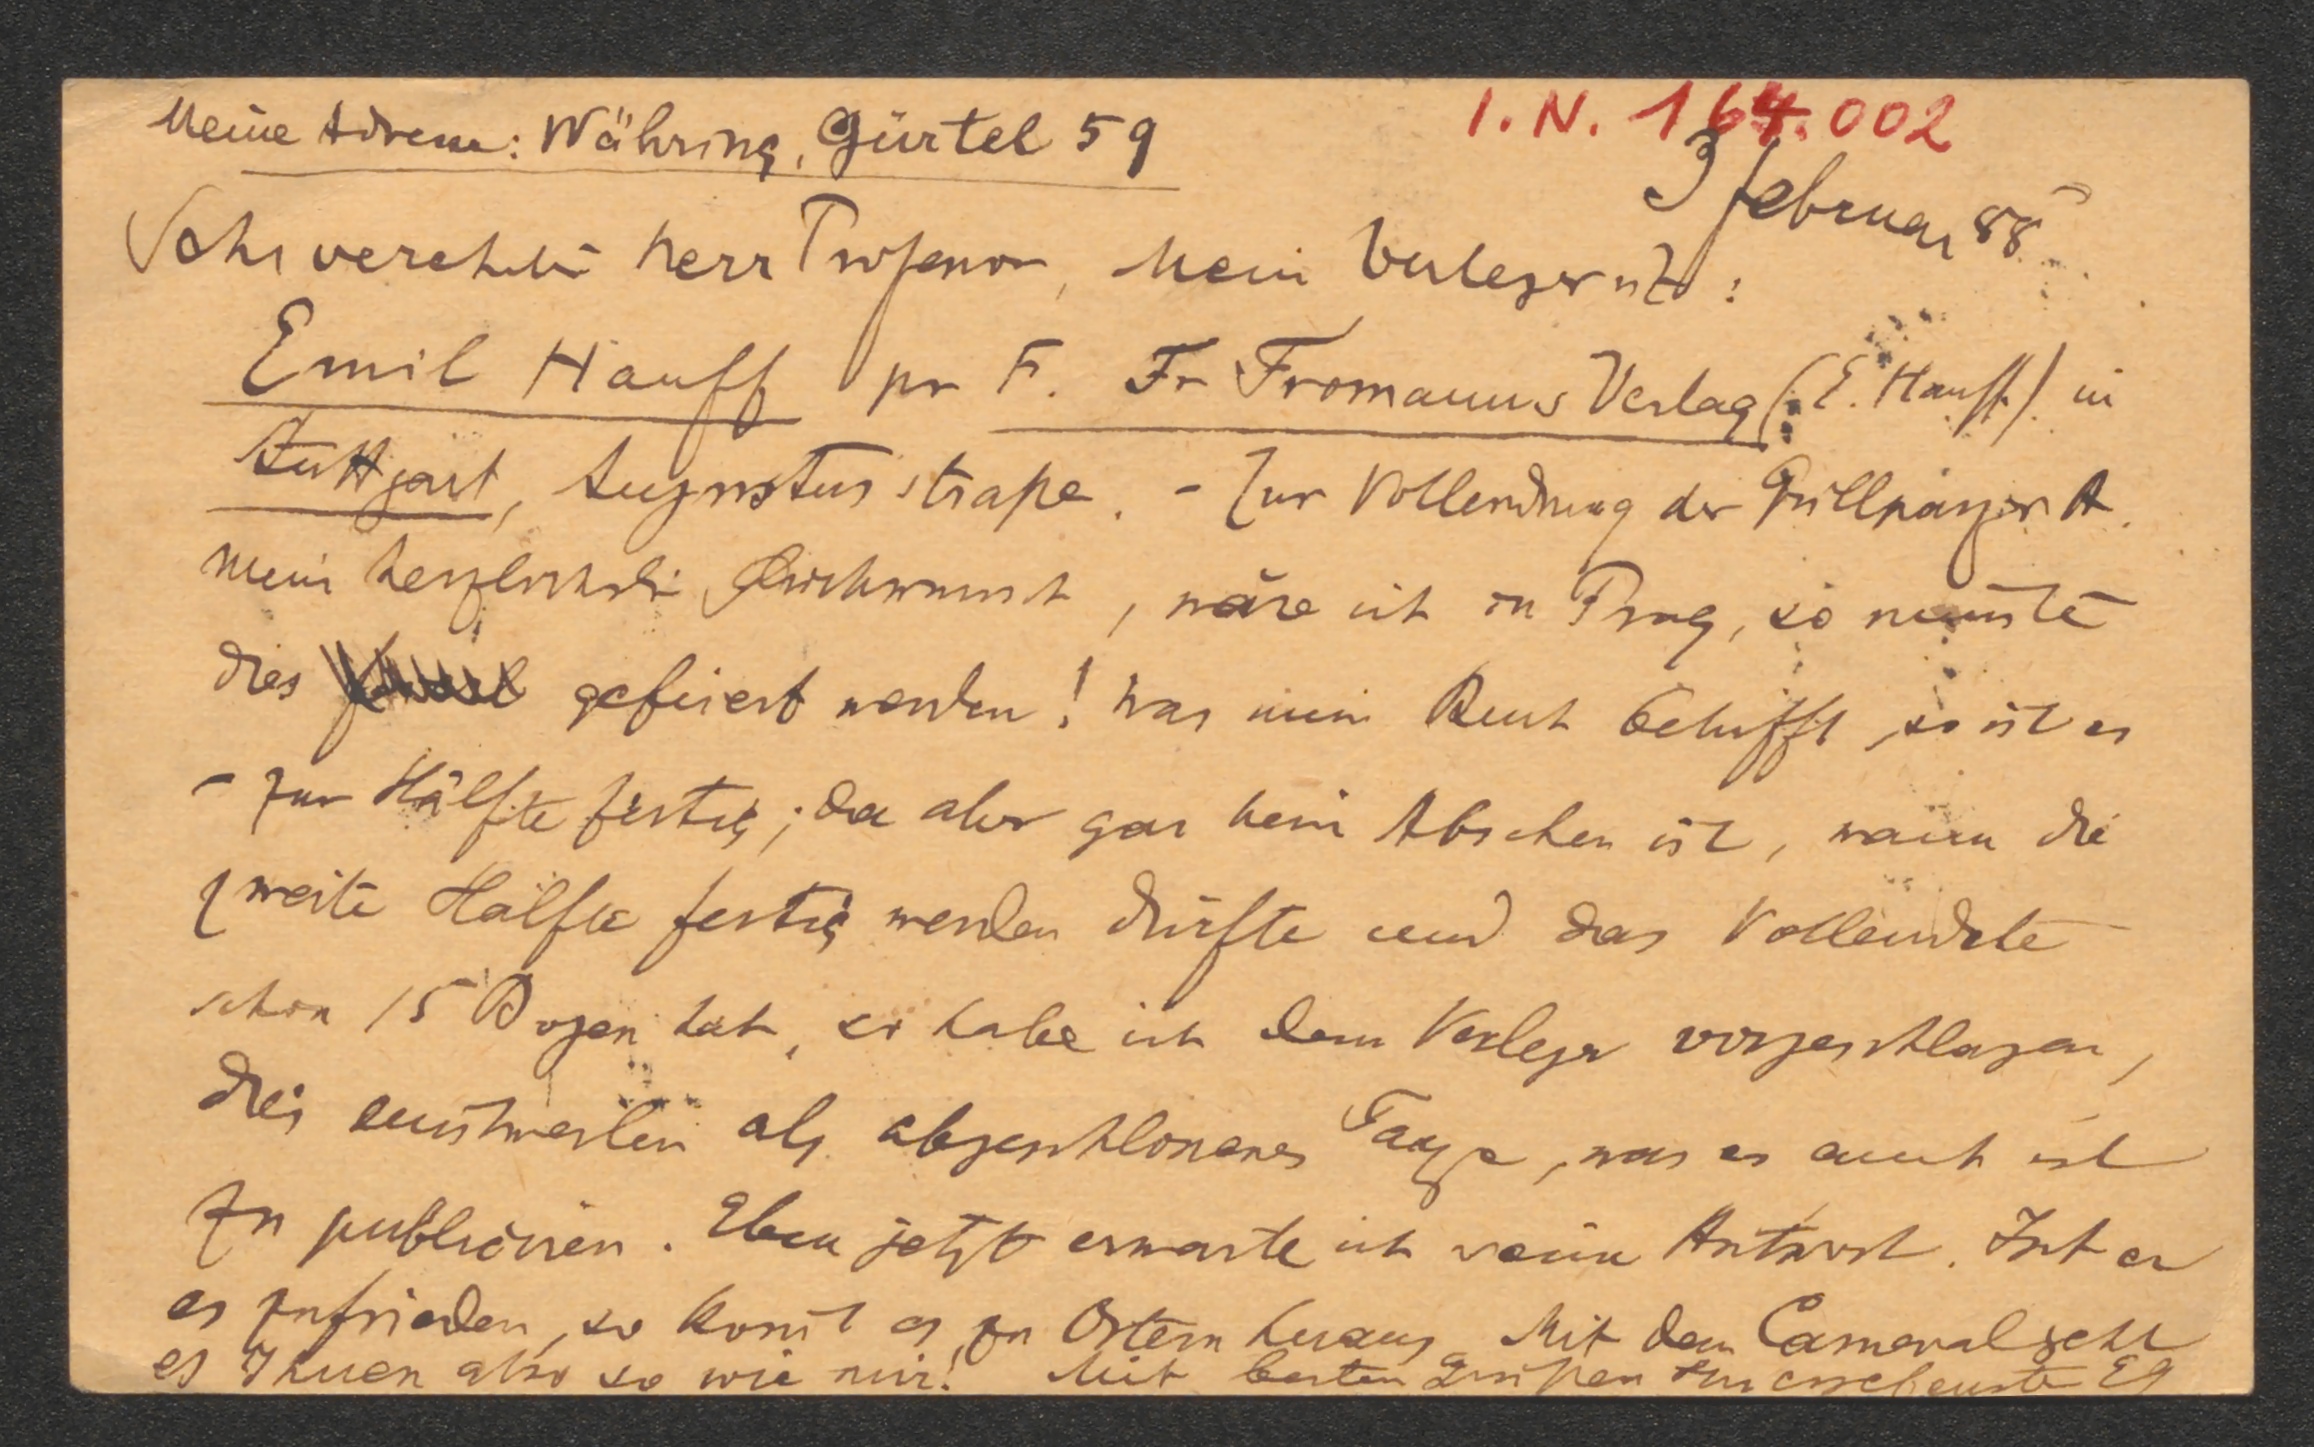 Meine Adresse: Währing, Gürtel 59
I. N. 164.002
3 Februar 88
Sehr verehrter Herr Professor, Mein Verleger ist:
Emil Hauff pr F. Fr Fromanns Verlag (E. Hauff) in
Stuttgart, Augustusstraße. - Zur Vollendung der Grillparzer A.
mein herzlichster Glückwunsch, wäre ich in Prag, so müsste
dies gefeiert werden! Was mein Buch betrifft, so ist es
- zur Hälfte fertig; da aber gar kein Absehen ist, wann die
zweite Hälfte fertig werden dürfte und das Vollendete
schon 15 Bogen hat, so habe ich dem Verleger vorgeschlagen,
dies einstweilen als abgeschlossenes Ganze, was es auch ist
zu publiciren. Eben jetzt erwarte ich seine Antwort. Ist er
es zufrieden, so komt es zu Ostern heraus. Mit dem Cameral geht
es Ihnen also so wie mir! Mit besten Grüßen Ihr ergebenster EG